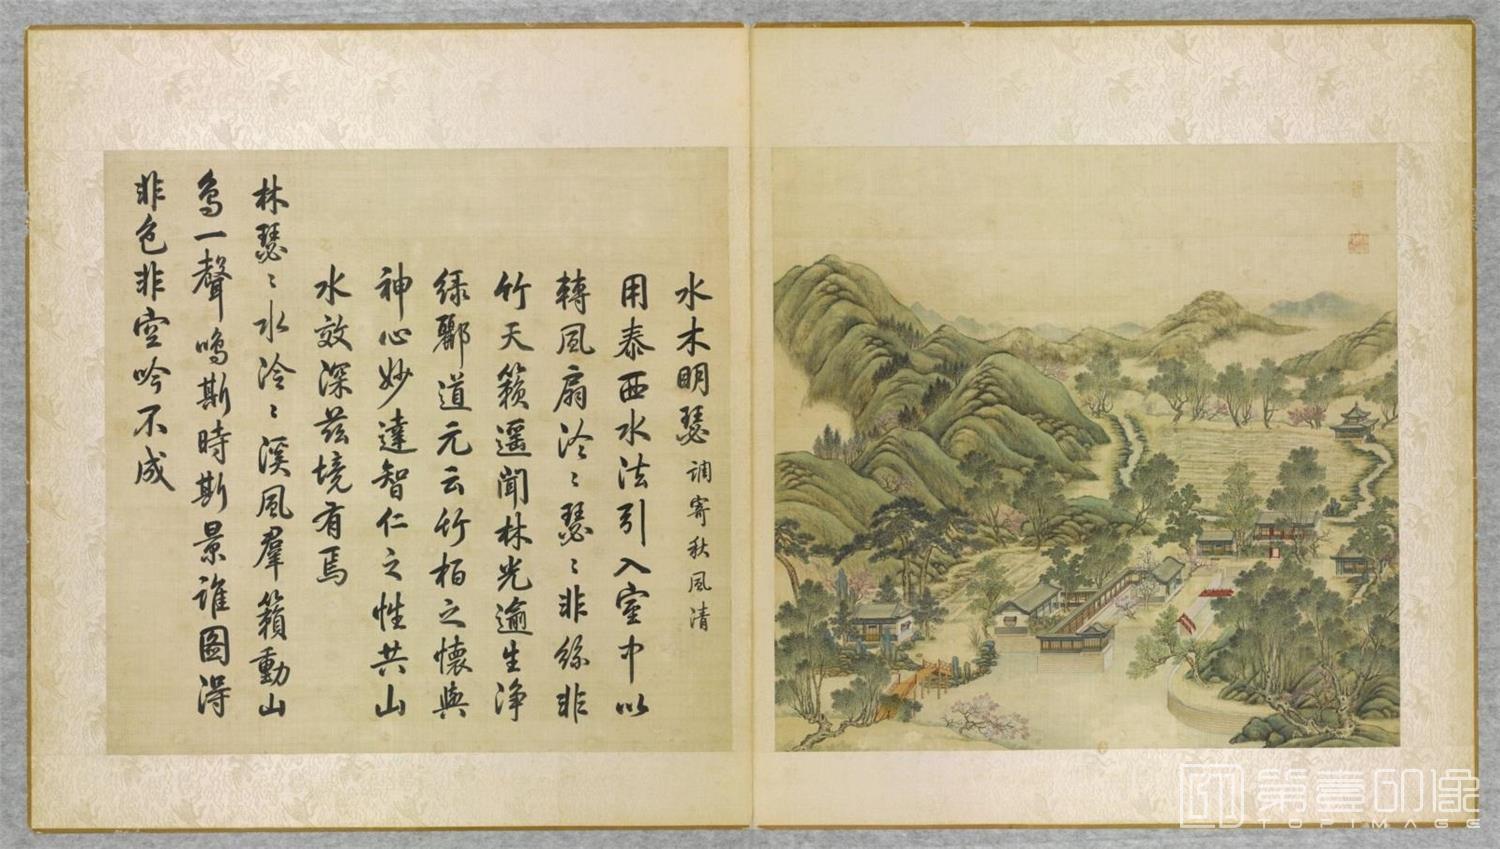 水木明瑟 調寄秋風清
用泰西水法引入室中以
轉風扇泠〻瑟〻非絲非
竹天籟遥聞林光逾生浄
緑酈道元云竹柏之懷與
神心妙達智仁之性共山
水效深兹境有焉
林瑟〻水泠〻溪風羣籟動山
鳥一聲鳴斯時斯景誰圖得
非色非空吟不成
第壹印像
TOPIMAGE